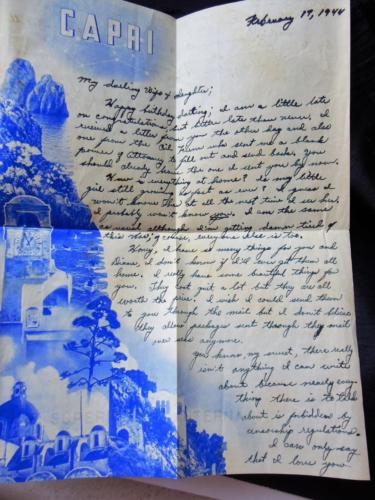 CAPRI
February 19, 1944
My darling Wife & Daughter;
Happy birthday darling; I am a little late
on congratulations, but better late than never. I
received a letter from you the other day and also
one from the who sent me a blank
power of attorney to fill out and send back, you
should already have the one I sent you by now.
How is everything at home? Is my little
girl still growing as fast as ever? I guess I
won't know her at all the next time I see her,
I probably won't know you. I am the same
as usual although I'm getting damn tired of
this War; of course, everyone else is too.
Honey, I have so many things for you and
Diane, I don't know if I'll ever get them all
home. I really have some beautiful things for
you. They cost quit a lot but they are all
worth the price. I wish I could send them
to you through the mail but I don't believe
they allow packages sent through the mail
over seas anymore.
you know my sweet, there really
isn't anything I can write
about because nearly every
thing there is to talk
about is forbidden by
censorship regulations.
I can only say
that I love you